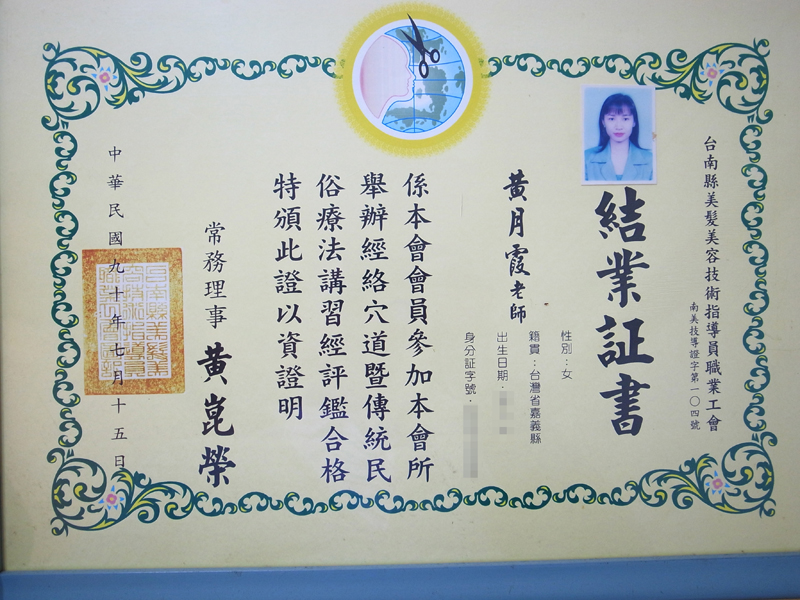 台南縣美髮美容技術指導員職業工會
南美技導證字第一〇四號
結業証書
黃月霞老師
性別：女
籍貫：台灣省嘉義縣
出生日期：
身分証字號：
係本會會員參加本會所
舉辦經絡穴道暨傳統民
俗療法講習經評鑑合格
特頒此證以資證明
常務理事 黃崑榮
中華民國九十年七月十五日